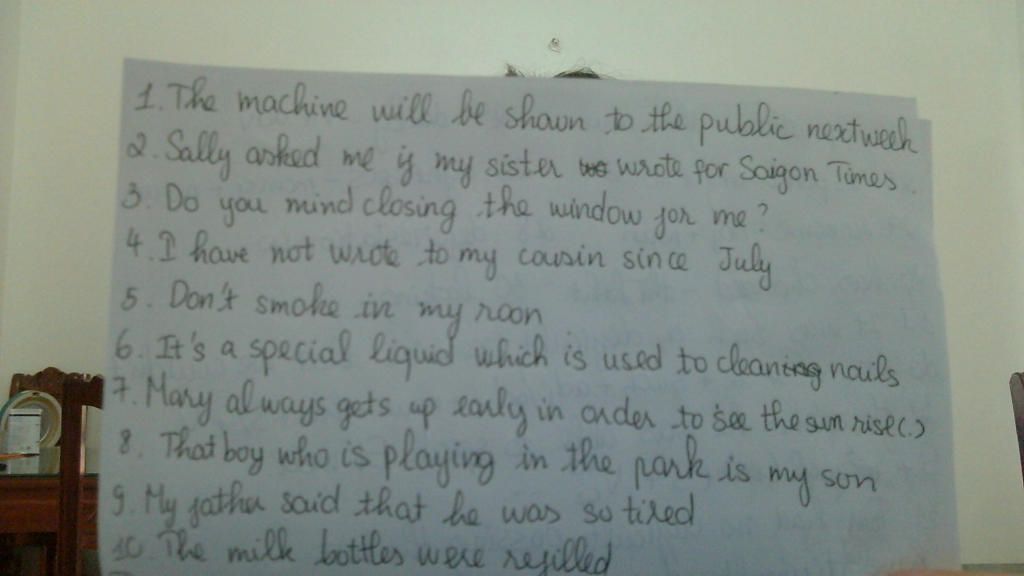 1. The machine will be shown to the public next week
2. Sally asked me if my sister wrote for Saigon Times.
3. Do you mind closing the window for me?
4. I have not wrote to my cousin since July
5. Don't smoke in my roon
6. It's a special liquid which is used to clean nails
7. Mary always gets up early in order to see the sun rise(.)
8. That boy who is playing in the park is my son
9. My father said that he was so tired
10. The milk bottles were refilled